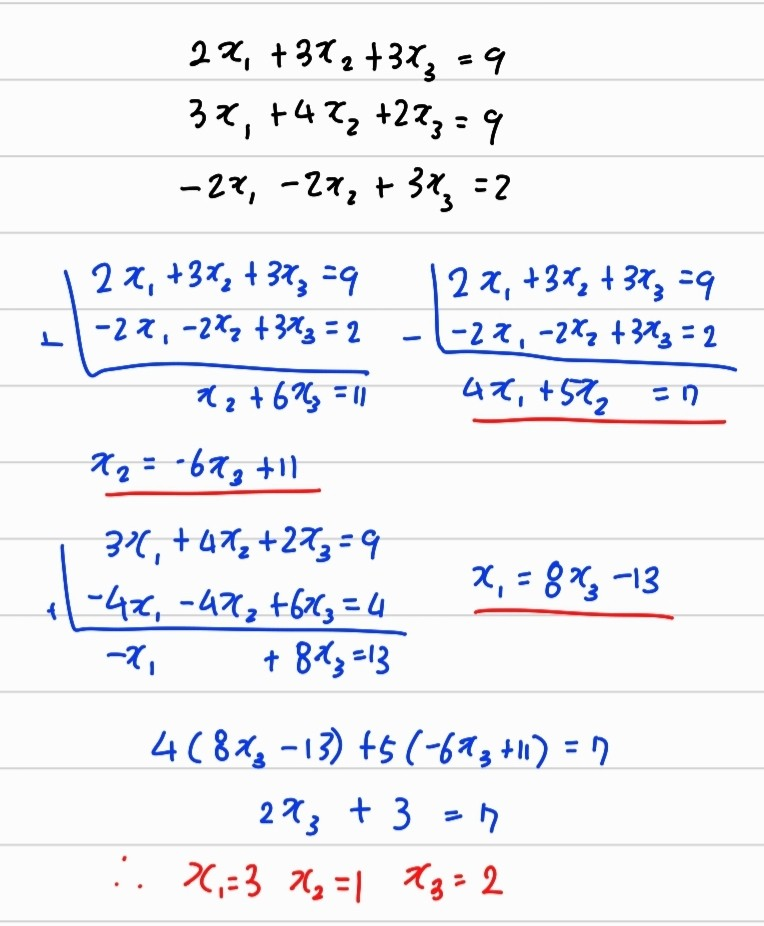 2x₁ + 3x₂ + 3x₃ = 9
3x₁ + 4x₂ + 2x₃ = 9
-2x₁ - 2x₂ + 3x₃ = 2
2x₁ + 3x₂ + 3x₃ = 9
+ -2x₁ - 2x₂ + 3x₃ = 2
x₂ + 6x₃ = 11
2x₁ + 3x₂ + 3x₃ = 9
- -2x₁ - 2x₂ + 3x₃ = 2
4x₁ + 5x₂ = 7
x₂ = -6x₃ + 11
3x₁ + 4x₂ + 2x₃ = 9
+ -4x₁ - 4x₂ + 6x₃ = 4
-x₁ + 8x₃ = 13
x₁ = 8x₃ - 13
4(8x₃ - 13) + 5(-6x₃ + 11) = 7
2x₃ + 3 = 7
∴ x₁ = 3 x₂ = 1 x₃ = 2